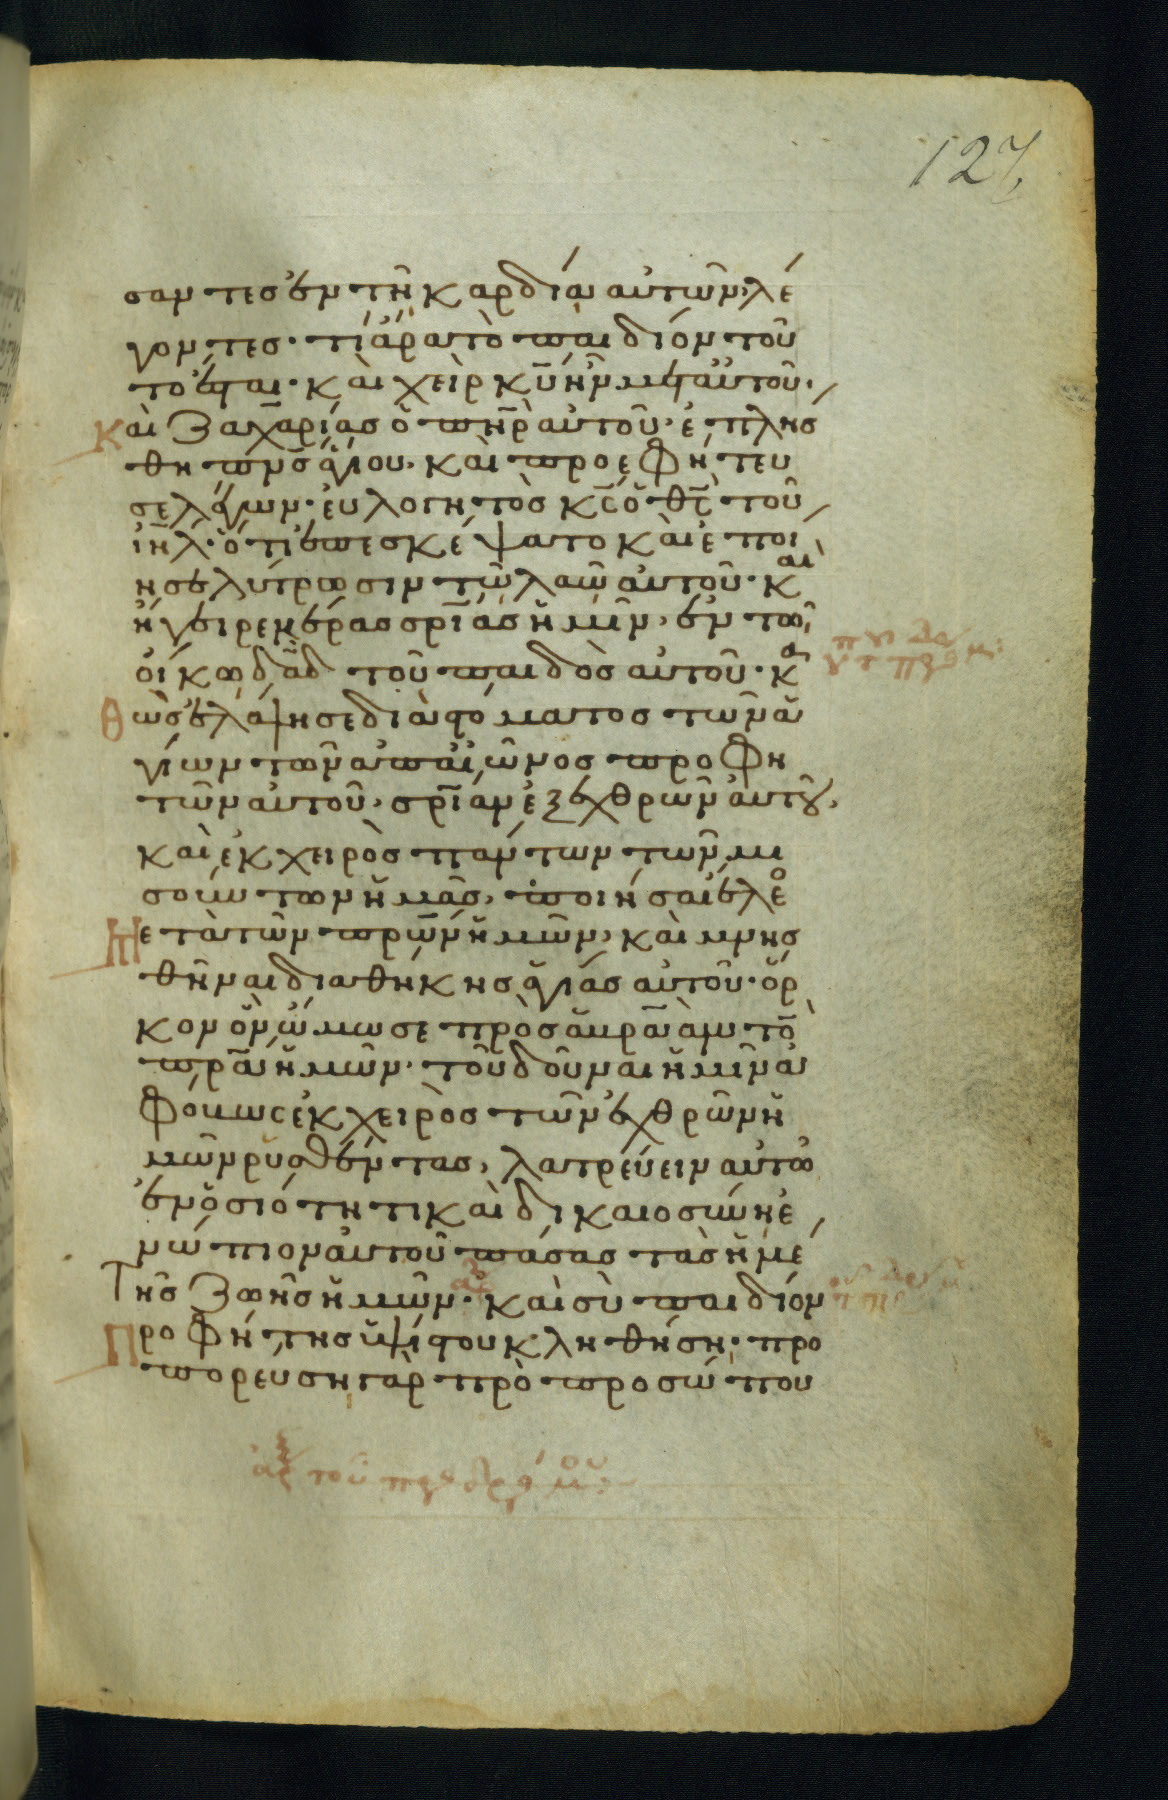 127
σαντες ἐν τῆ καρδία αὐτῶν, λέ
γοντες· τί ἄρα τὸ παιδίον τοῦ
το ἔσται· καὶ χεὶρ κ̅υ ἦν μετ αὐτοῦ·
Καὶ Ζαχαρίας ὁ π̅η̅ρ αὐτοῦ· ἐπλησ
θη π̅ν̅ς ἁγίου· καὶ προεφήτευ
σε λέγων· εὐλογητὸς κ̅ς ὁ θ̅ς τοῦ
ι̅η̅λ· ὅτι ἐπεσκέψατο καὶ ἐποι
ησε λύτρωσιν τῶ λαῶ αὐτοῦ· και
ἤγειρεν κέρας σ̅ρ̅ίας ἡμῖν, ἐν τῶ
οἴκω δ̅α̅δ τοῦ παιδὸς αὐτοῦ· κα
θὼς ἐλάλησε διὰ στόματος τῶν ἁ
γίων τῶν ἀπ αἰῶνος προφη
τῶν αὐτοῦ, σ̅ρ̅ίαν ἐξ ἐχθρῶν αὐτοῦ,
καὶ ἐκ χειρὸς πάντων τῶν μι
σούντων ἡμᾶς, ποιῆσαι ἔλεο
Μετὰ τῶν π̅ρ̅ω̅ν ἡμῶν, καὶ μνησ
θῆναι διαθήκης ἁγίας αὐτοῦ· ὅρ
κον ὃν ὤμωσε πρὸς ἀβραὰμ τὸ
π̅ρ̅α ἡμῶν· τοῦ δοῦναι ἡμῖν ἀ
φόβως ἐκ χειρὸς τῶν ἐχθρῶν ἡ
μῶν ρυσθέντας, λατρεύειν αὐτῶ
ἐν ὁσιότητι καὶ δικαιοσύνη ἐ
νώπιον αὐτοῦ πάσας τὰς ἡμέ
Τῆς ζωῆς ἡμῶν· καὶ σὺ παιδίον
Προφήτης ὑψίστου κληθήση· προ
πορεύση γὰρ πρὸ προσώπου